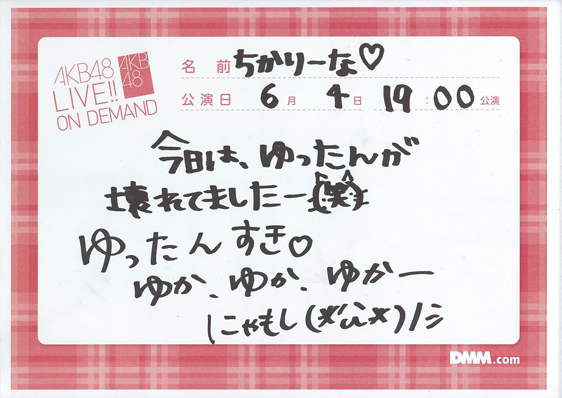 AKB48
LIVE!!
ON DEMAND
AKB
48
名前 ちかりーな♡
公演日 6月 4日 19:00公演
今日は、ゆったんが
壊れてましたー(笑)
ゆったんすき♡
ゆか、ゆか、ゆかー
にゃもし(*'ω'*)ノシ
DMM.com